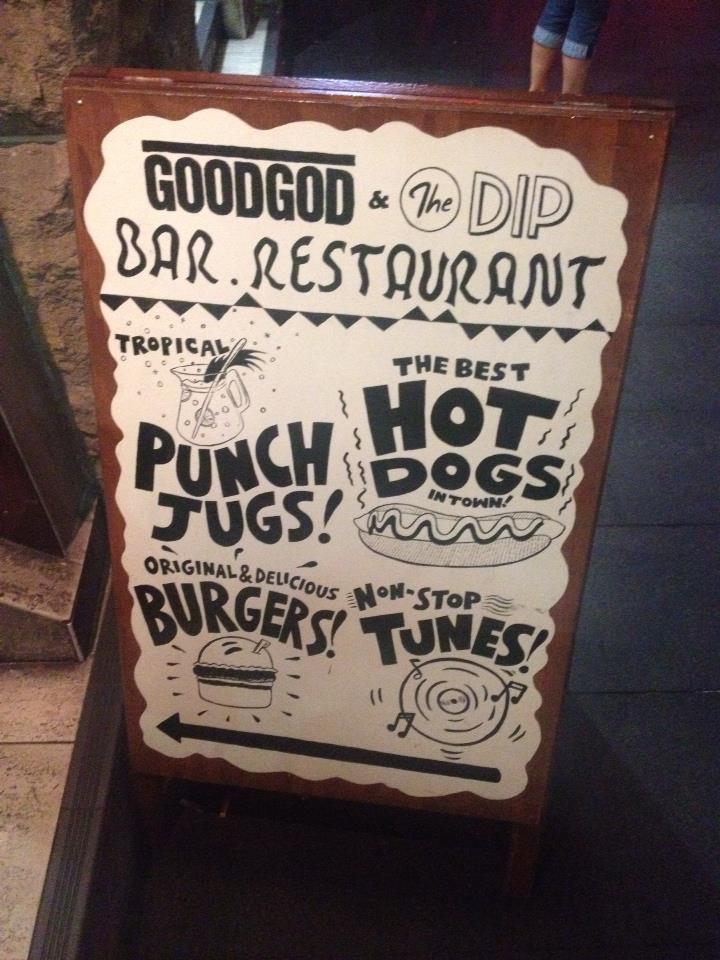 GOODGOD & The DIP
BAR. RESTAURANT
TROPICAL
PUNCH
JUGS!
THE BEST
HOT
DOGS
IN TOWN!
ORIGINAL & DELICIOUS
BURGERS!
NON-STOP
TUNES!